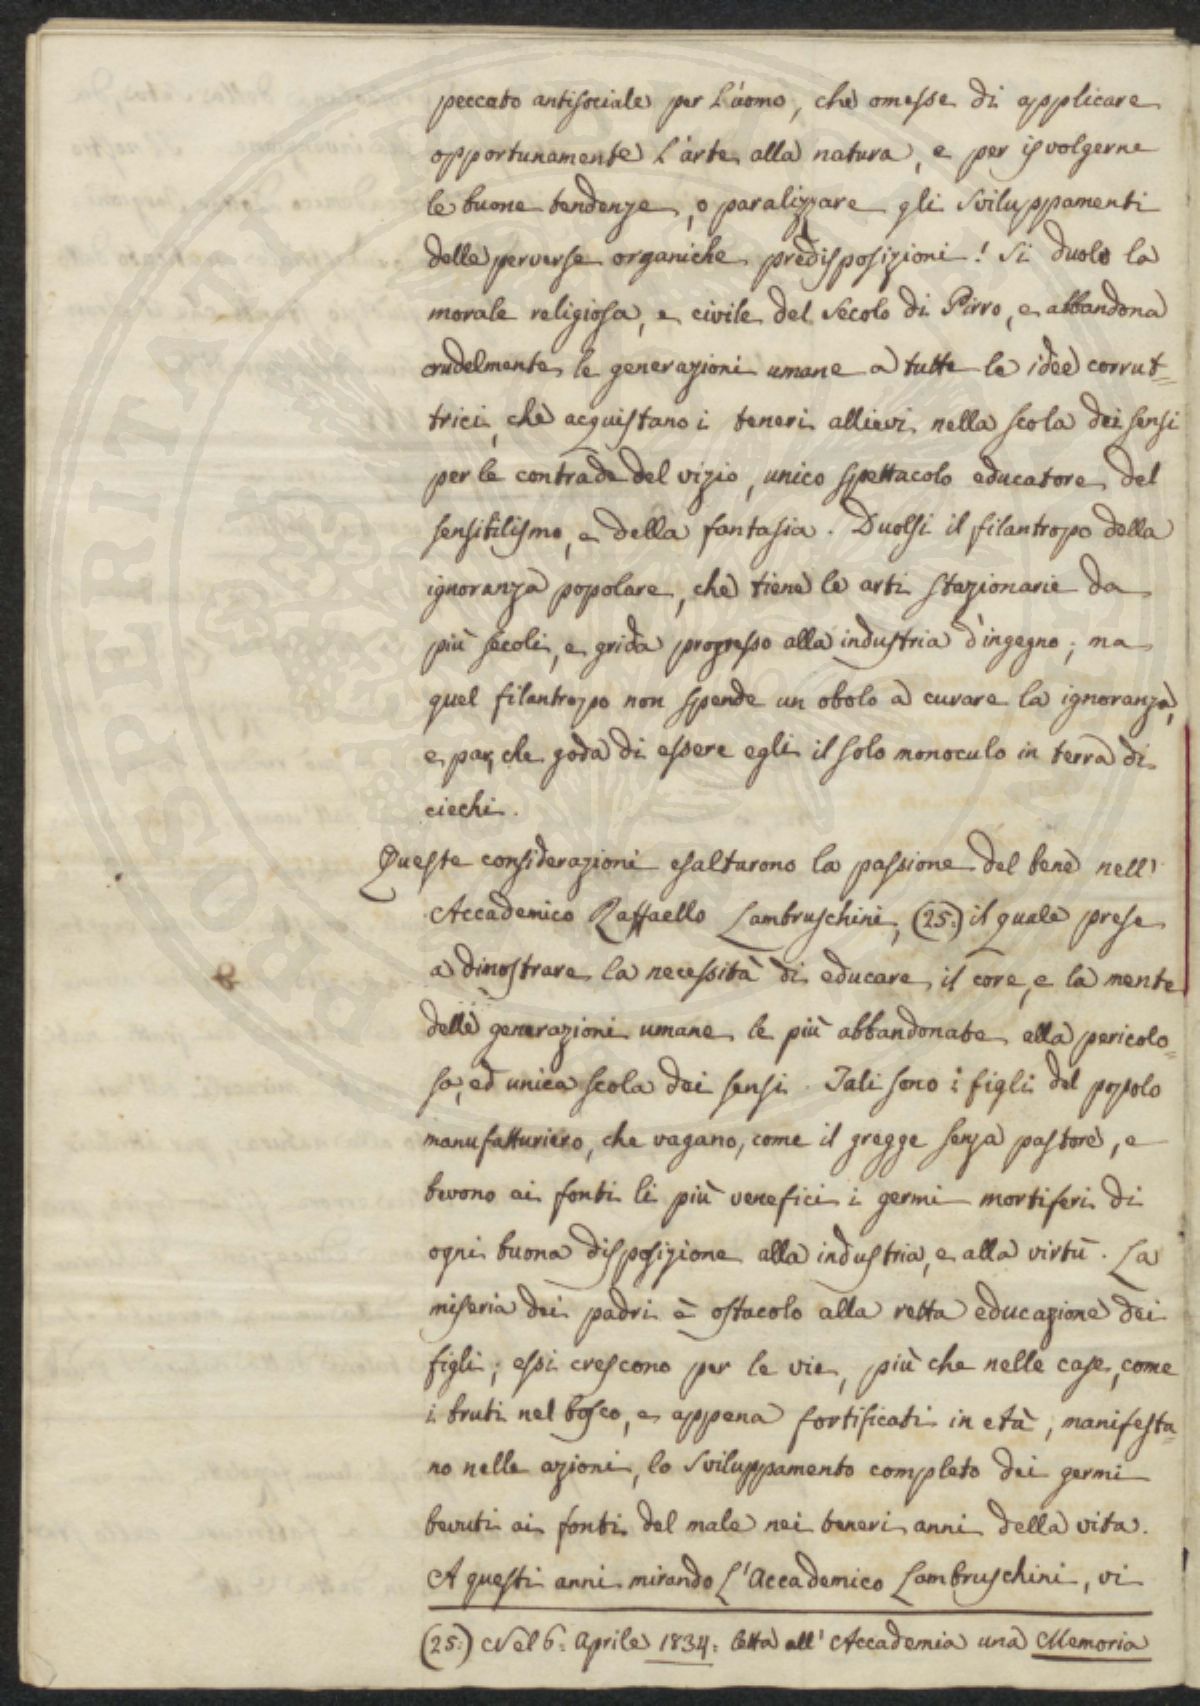 peccato antisociale per l'uomo, che omesse di applicare
opportunamente l'arte alla natura, e per isvolgerne
le buone tendenze, o paralizzare gli sviluppamenti
delle perverse organiche predisposizioni! Si duole la
morale religiosa, e civile del secolo di Pirro, e abbandona
crudelmente le generazioni umane a tutte le idee corrut=
trici, che acquistano i teneri allievi nella scola dei sensi
per le contrade del vizio, unico spettacolo educatore del
sensibilismo, e della fantasia. Duolsi il filantropo della
ignoranza popolare, che tiene le arti stazionarie da
più secoli, e grida progresso alla industria d'ingegno; ma
quel filantropo non spende un obolo a curare la ignoranza,
e par, che goda di essere egli il solo monoculo in terra di
ciechi.
Queste considerazioni esaltarono la passione del bene nell'
Accademico Raffaello Lambruschini, (25:) il quale prese
a dimostrare la necessità di educare il core, e la mente
delle generazioni umane le più abbandonate alla pericolo=
sa, ed unica scola dei sensi. Tali sono i figli del popolo
manufatturiero, che vagano, come il gregge senza pastore, e
bevono ai fonti li più venefici i germi mortiferi di
ogni buona disposizione alla industria, e alla virtù. La
miseria dei padri è ostacolo alla retta educazione dei
figli; essi crescono per le vie, più che nelle case, come
i bruti nel bosco, e appena fortificati in età, manifesta=
no nelle azioni, lo sviluppamento completo dei germi
bevuti ai fonti del male nei teneri anni della vita.
A questi anni mirando l'Accademico Lambruschini, vi
(25:) Nel 6: Aprile 1834: letta all'Accademia una Memoria
PROSPERITATI